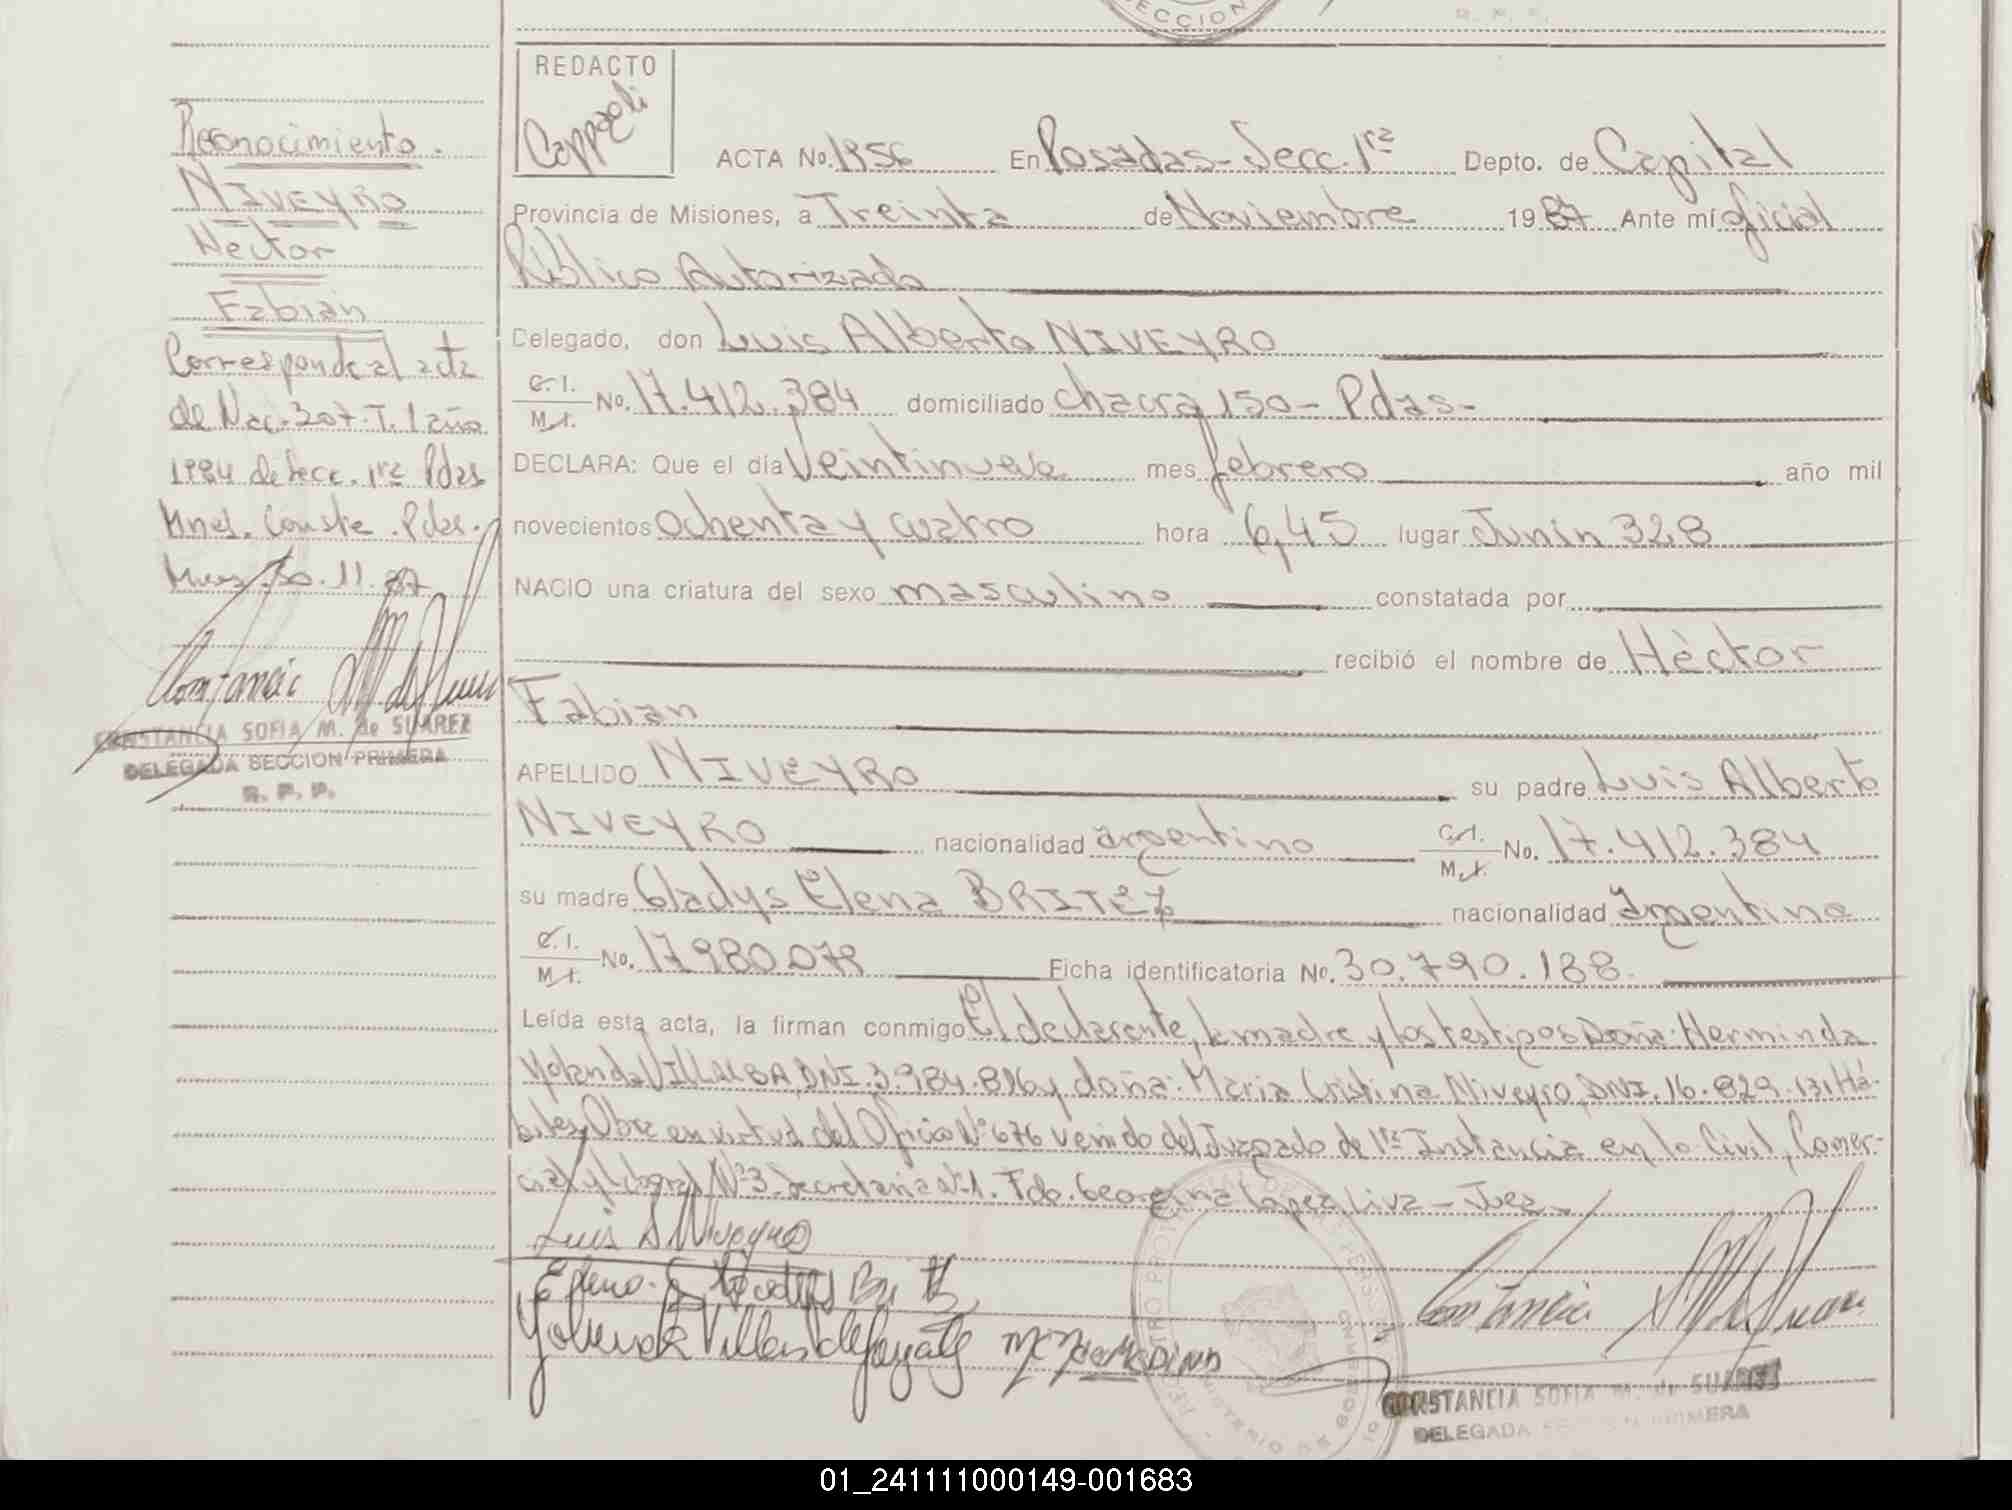 ECCION
R. P. P.
REDACTO
Cappagli
ACTA No. 1856 En Posadas - Secc. 1ra Depto. de Capital
Provincia de Misiones, a Treinta de Noviembre 1987 Ante mí Oficial
Público Autorizado
Delegado, don Luis Alberto NIVEYRO
C.I. M.I. No. 17.412.384 domiciliado chacra 150 - Pdas -
DECLARA: Que el día Veintinueve mes febrero año mil
novecientos ochenta y cuatro hora 6,45 lugar Junín 328
NACIO una criatura del sexo masculino constatada por
recibió el nombre de Héctor
Fabian
APELLIDO NIVEYRO su padre Luis Alberto
NIVEYRO nacionalidad argentino C.I. M.I. No. 17.412.384
su madre Gladys Elena BRITEZ nacionalidad argentina
C.I. M.I. No. 17980.079 Ficha identificatoria No. 30.790.188.
Leída esta acta, la firman conmigo El declarante, la madre y los testigos Doña: Herminda
Yolanda VILLALBA, DNI. 3.984.816 y doña: Maria Cristina Niveyro, DNI. 16.829.131 Há-
biles, Obre en virtud del Oficio Nº 676 venido del Juzgado de 1ra Instancia en lo Civil, Comer-
cial y Laboral Nº 3 Secretaria nº 1. Fdo. Georgina Lopez Liva - Juez -
Luis A Niveyro
Constancia S M de Suarez
CONSTANCIA SOFIA M. de SUAREZ
DELEGADA SECCION PRIMERA
Reconocimiento.
NIVEYRO
Hector
Fabián
Corresponde al acta
de Nac. 307. T. 1 año
1984 de Secc. 1ra Pdas
Mnes. Conste. Pdas.
Mnes 30.11.87
Constancia S M de Suarez
CONSTANCIA SOFIA M. de SUAREZ
DELEGADA SECCION PRIMERA
R. P. P.
01_241111000149-001683